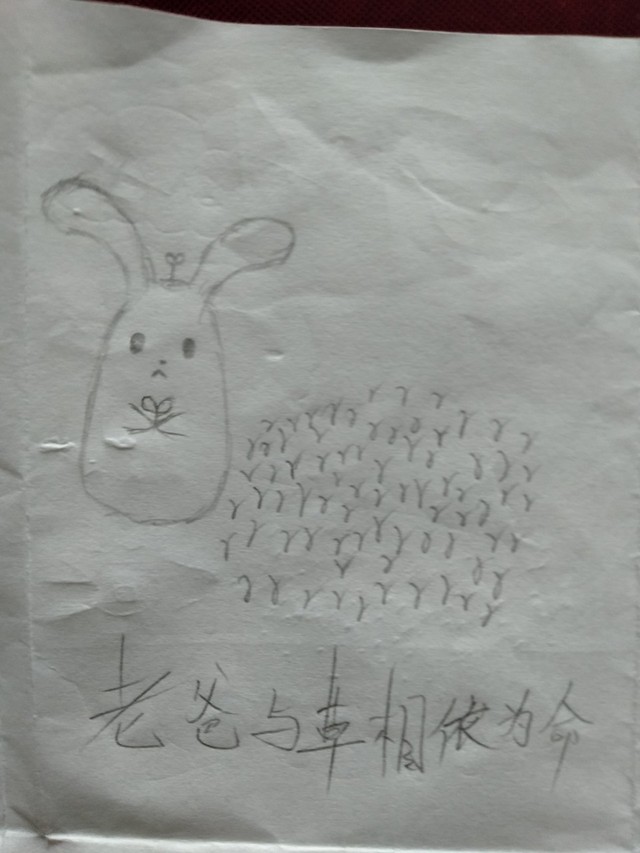 老爸与草相依为命